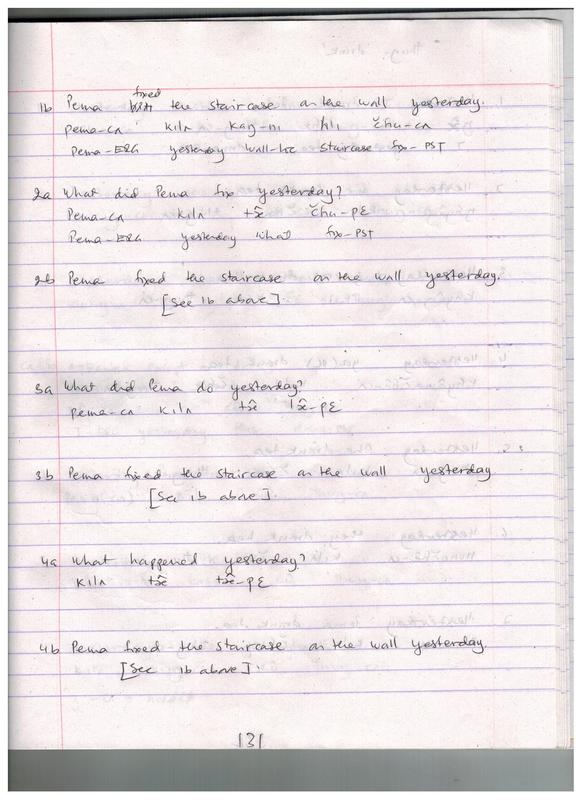 1b Pema fixed the staircase on the wall yesterday.
pema-cʌ kilʌ kaŋ-ni hli čhu-cʌ
Pema-ERG yesterday wall-loc staircase fix-PST
2a What did Pema fix yesterday?
Pema-cʌ kilʌ tx̂ čhu-pɛ
Pema-ERG yesterday what fix-PST
2b Pema fixed the staircase on the wall yesterday.
[See 1b above]
3a What did Pema do yesterday?
pema-cʌ kilʌ tx̂ lx̂-pɛ
3b Pema fixed the staircase on the wall yesterday
[See 1b above].
4a What happened yesterday?
kilʌ tx̂ tx̂-pɛ
4b Pema fixed the staircase on the wall yesterday.
[See 1b above].
131